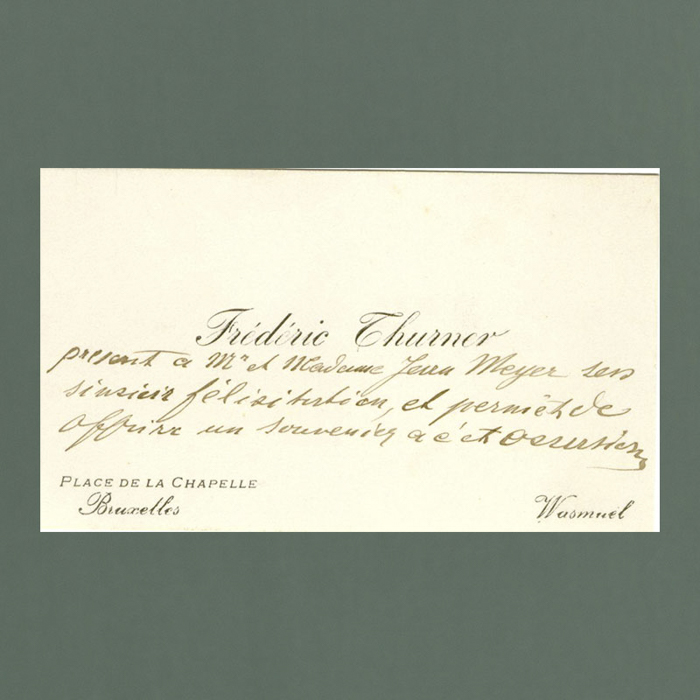 Frédéric Thurner
present a Mr et Madame Jean Meyer ses
sinsieir félisitation, et permêt de
offrire un souvenir a cét ocassion
PLACE DE LA CHAPELLE
Bruxelles
Wasmuel